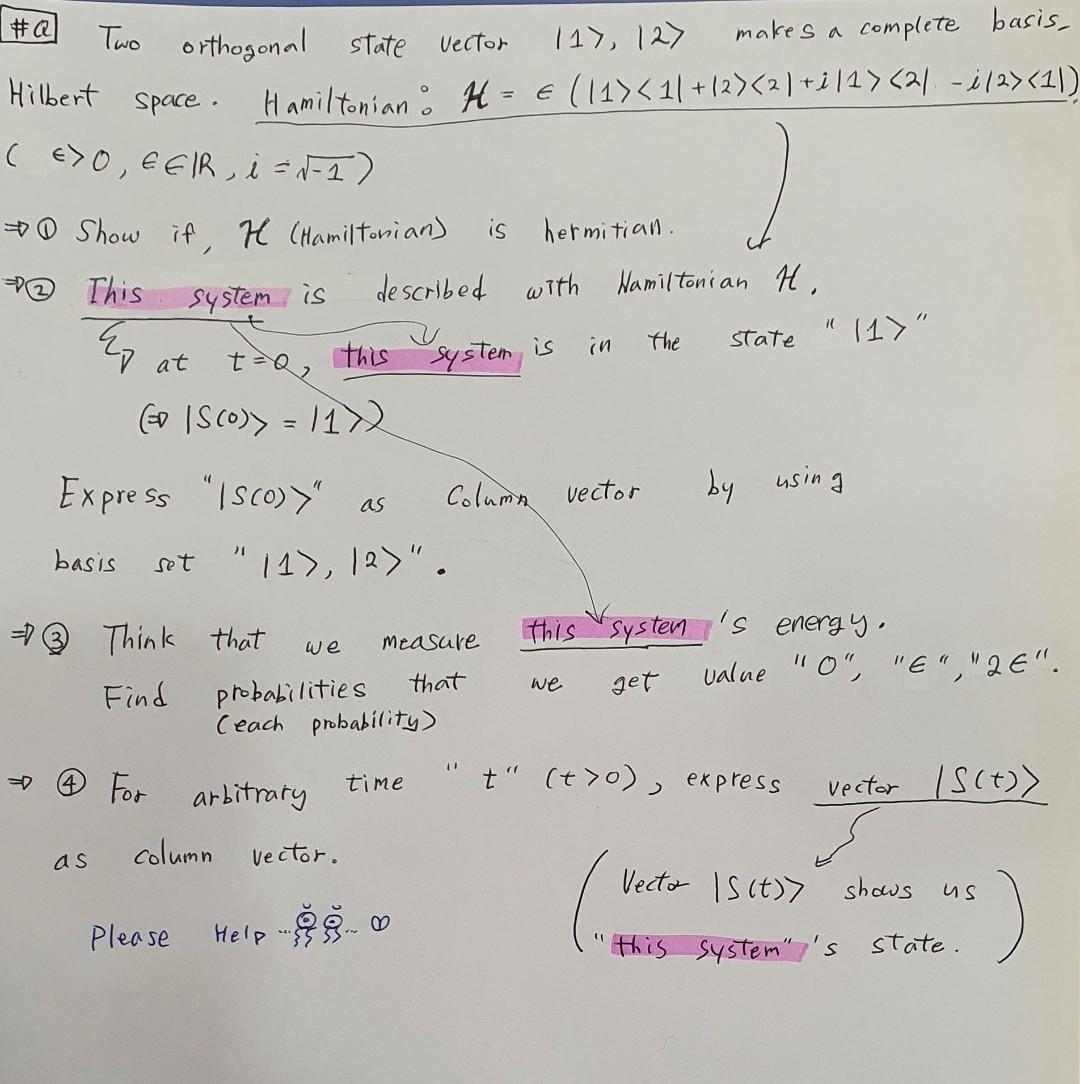 #Q Two orthogonal state vector |1>, |2> makes a complete basis_
Hilbert space. Hamiltonian: H = ϵ (|1><1|+|2><2|+i|1><2| -i|2><1|)
( ϵ>0, ϵ∈ℝ, i=√-1)
⇒ ① Show if, H (Hamiltonian) is hermitian.
⇒ ② This system is described with Hamiltonian H.
at t=0, this system is in the state "|1>"
(⇒ |S(0)> = |1>)
Express "|S(0)>" as Column vector by using
basis set "|1>, |2>".
⇒ ③ Think that we measure this system's energy.
Find probabilities that we get value "0", "ϵ", "2ϵ".
(each probability)
⇒ ④ For arbitrary time "t" (t>0), express vector |S(t)>
as column vector.
(Vector |S(t)> shows us
"this system"'s state.)
Please Help